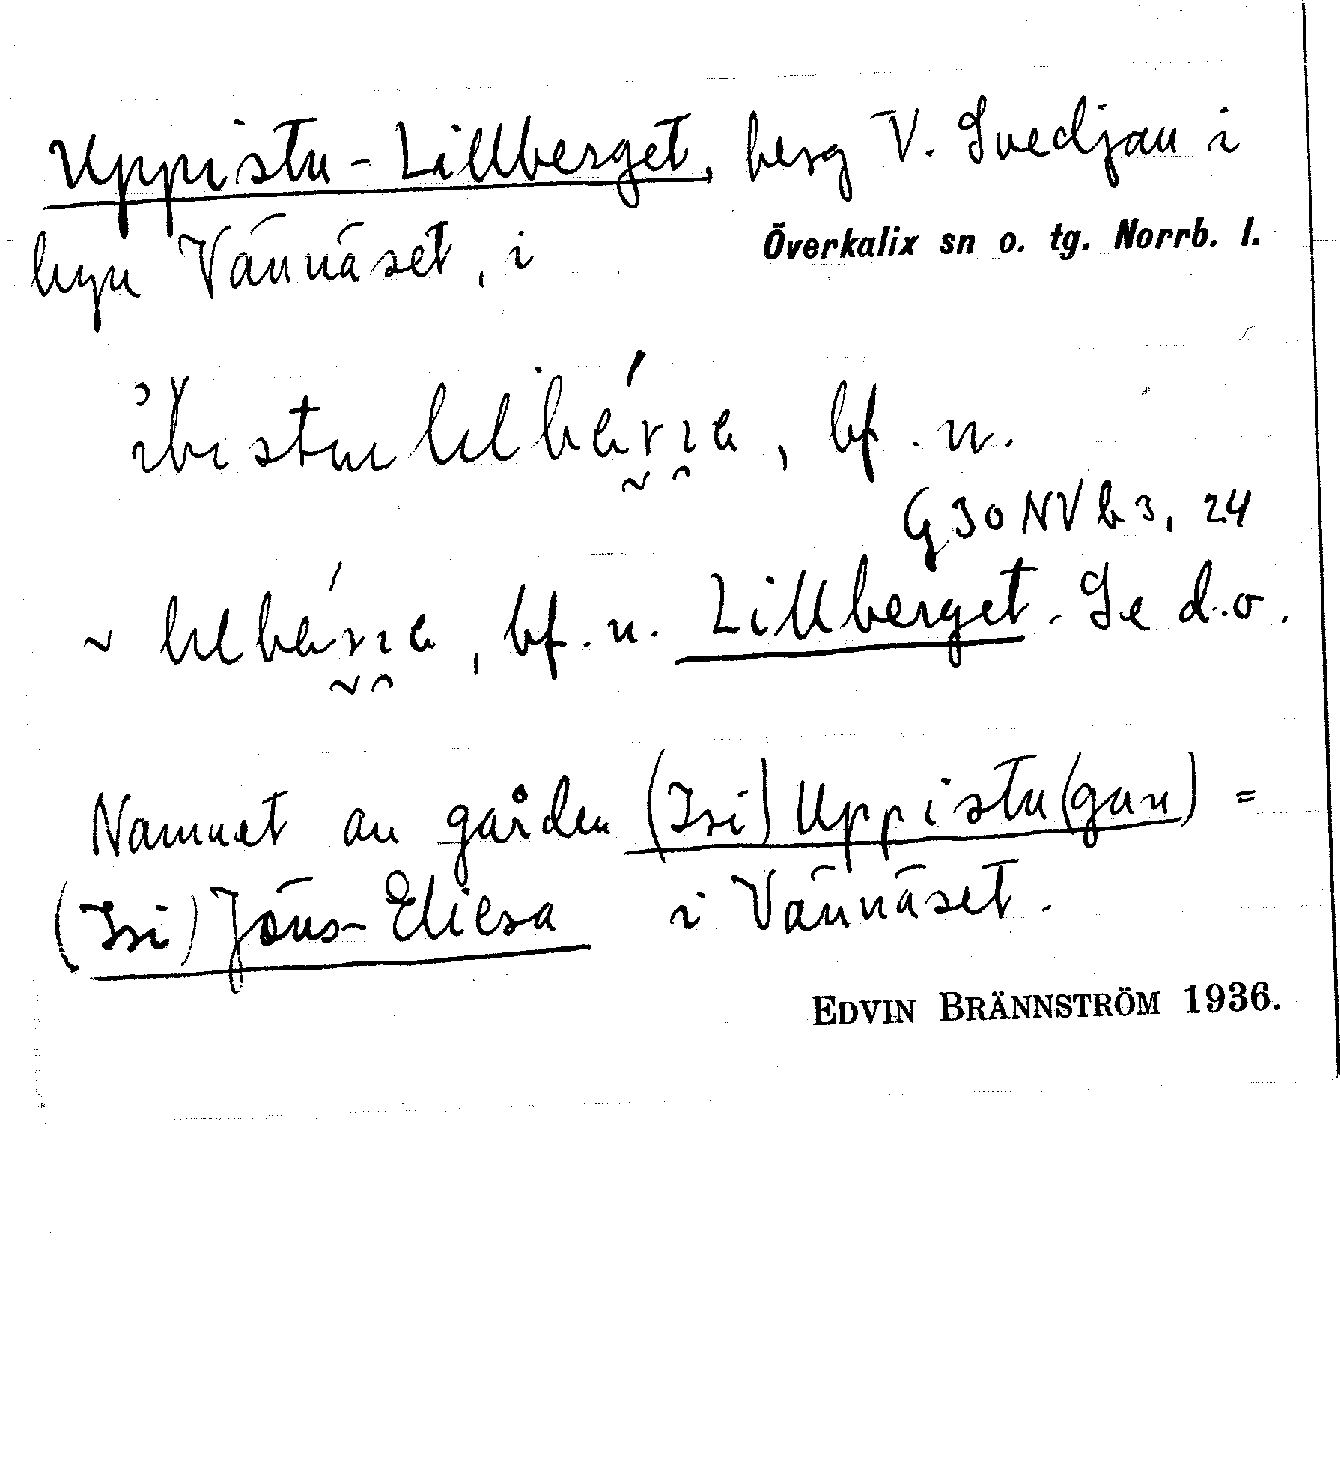 Uppistu-Lillberget, berg V. Svedjan i
byn Vännäset, i Överkalix sn o. tg. Norrb. l.
bf. n.
G 30 NV b 3, 24
~ bf. n. Lillberget. Se d.o.
Namnet av gården (Isi) Uppistu(gan) =
(Isi) Jöns-Eliesa i Vännäset.
EDVIN BRÄNNSTRÖM 1936.